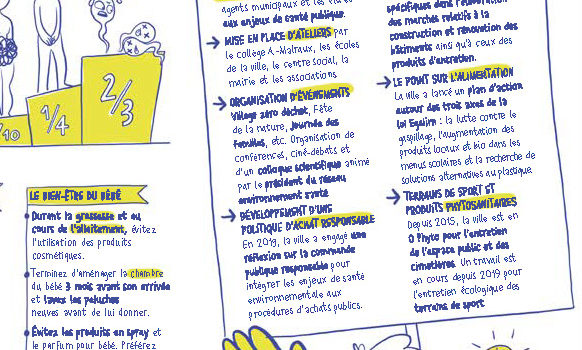 /10
1/4
2/3
LE BIEN-ÊTRE DU BÉBÉ
Durant la grossesse et au
cours de l'allaitement, évitez
l'utilisation des produits
cosmétiques.
Terminez d'aménager la chambre
du bébé 3 mois avant son arrivée
et lavez les peluches
neuves avant de lui donner.
Évitez les produits en spray et
le parfum pour bébé. Préférez
agents municipaux et les élus
aux enjeux de santé publique.
MISE EN PLACE D'ATELIERS par
le collège A.-Malraux, les écoles
de la ville, le centre social, la
mairie et les associations
ORGANISATION D'ÉVÉNEMENTS
Village zéro déchet, Fête
de la nature, Journée des
familles, etc. Organisation de
conférences, ciné-débats et
d'un colloque scientifique animé
par le président du réseau
environnement santé
DÉVELOPPEMENT D'UNE
POLITIQUE D'ACHAT RESPONSABLE
En 2019, la ville a engagé une
réflexion sur la commande
publique responsable pour
intégrer les enjeux de santé
environnementale aux
procédures d'achats publics.
des marchés relatifs à la
construction et rénovation des
bâtiments ainsi qu'à ceux des
produits d'entretien.
LE POINT SUR L'ALIMENTATION
La ville a lancé un plan d'action
autour des trois axes de la
loi Egalim : la lutte contre le
gaspillage, l'augmentation des
produits locaux et bio dans les
menus scolaires et la recherche de
solutions alternatives au plastique.
TERRAINS DE SPORT ET
PRODUITS PHYTOSANITAIRES
Depuis 2015, la ville est en
0 Phyto pour l'entretien
de l'espace public et des
cimetières. Un travail est
en cours depuis 2019 pour
l'entretien écologique des
terrains de sport